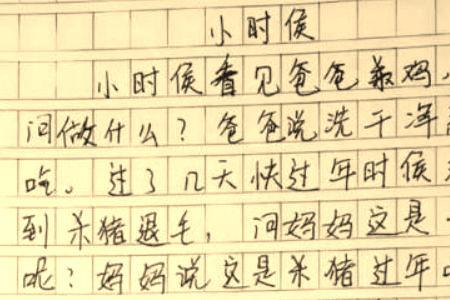 小时侯
小时侯看见爸爸杀鸡，
问做什么？爸爸说洗干净
吃。过了几天快过年时侯
到杀猪退毛，问妈妈这是
呢？妈妈说这是杀猪过年